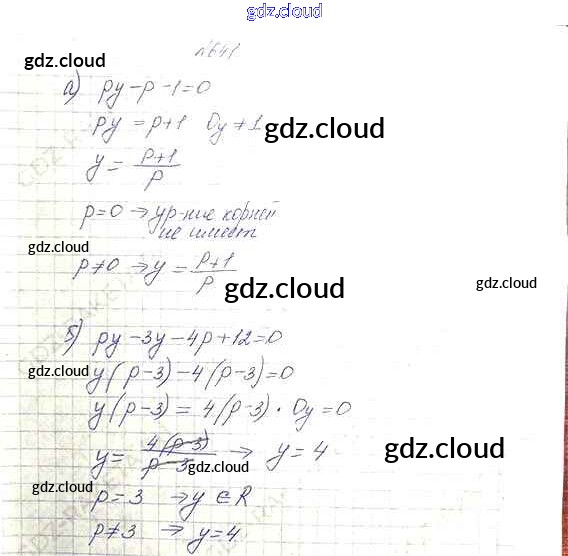 gdz.cloud
№641
gdz.cloud
а) py-p-1=0
py = p+1 0y≠1
gdz.cloud
y = p+1/p
p=0 → ур-ние корней
не имеет
gdz.cloud
p≠0 → y = p+1/p
gdz.cloud
gdz.cloud
б) py-3y-4p+12=0
gdz.cloud
y(p-3)-4(p-3)=0
y(p-3) = 4(p-3) · 0y=0
y= 4(p-3)/p-3 → y=4
gdz.cloud
gdz.cloud
gdz.cloud
p=3 → y∈R
p≠3 → y=4
gdz.cloud